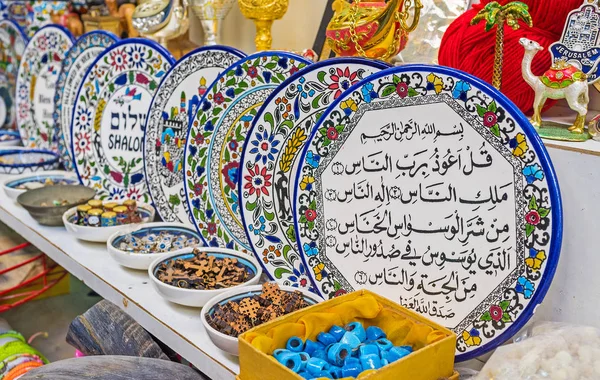 שלום
SHALOM
بِسْمِ اللهِ الرَّحْمنِ الرَّحِيمِ
قُلْ أَعُوذُ بِرَبِّ النَّاسِ
مَلِكِ النَّاسِ إِلهِ النَّاسِ
مِنْ شَرِّ الْوَسْوَاسِ الْخَنَّاسِ
الَّذِي يُوَسْوِسُ فِي صُدُورِ النَّاسِ
مِنَ الْجِنَّةِ وَالنَّاسِ
صدق الله العظيم
JERUSALEM